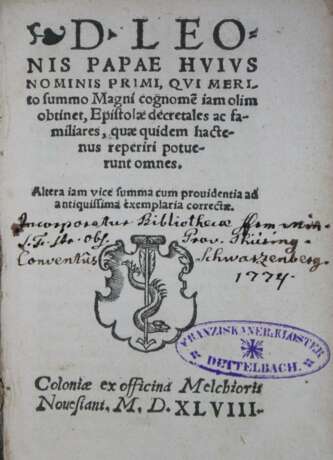 D. LEO-
NIS PAPAE HVIVS
NOMINIS PRIMI, QVI MERI-
to summo Magni cognomẽ iam olim
obtinet, Epistolæ decretales ac fa-
miliares, quæ quidem hacte-
nus reperiri potue-
runt omnes.
Altera iam vice summa cum prouidentia ad
antiquissima exemplaria correctæ.
Incorporatur Bibliothecæ
Str. obs. Prov. Thüring.
Conventûs Schwarzenberg.
1774.
FRANZISKANER-KLOSTER
DETTELBACH.
Coloniæ ex officina Melchioris
Nouesiani. M. D. XLVIII.